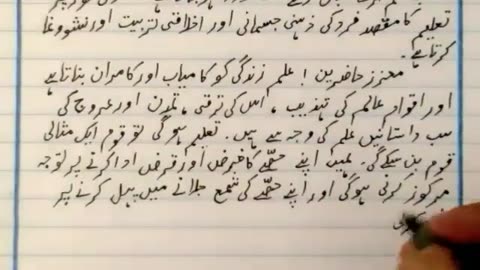 تعلیم کا مقصد فرد کی ذہنی جسمانی اور اخلاقی تربیت اور نشوونما
کرتا ہے۔
معزز حاضرین! علم زندگی کو کامیاب اور کامران بناتا ہے
اور اقوام عالم کی تہذیب، اس کی ترقی، تمدن اور عروج کی
سب داستانیں علم کی وجہ سے ہیں۔ تعلیم ہو گی تو قوم ایک مثالی
قوم بن سکے گی۔ ہمیں اپنے حصّے کا فرض اور قرض ادا کرنے پر توجہ
مرکوز کرنی ہو گی اور اپنے حصّے کی شمع جلانے میں پہل کرنے پر